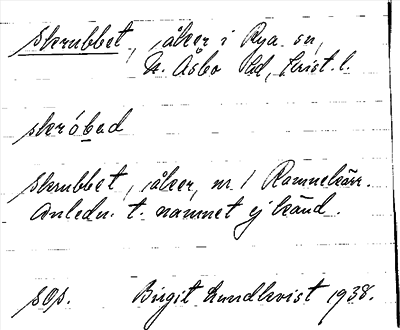 Skrubbet, åker i Rya sn,
N. Åsbo hd, Krist. l.
skróbad
Skrubbet, åker, nr 1 Ramnekärr.
Anledn. t. namnet ej känd.
sOp. Birgit Lundkvist 1938.